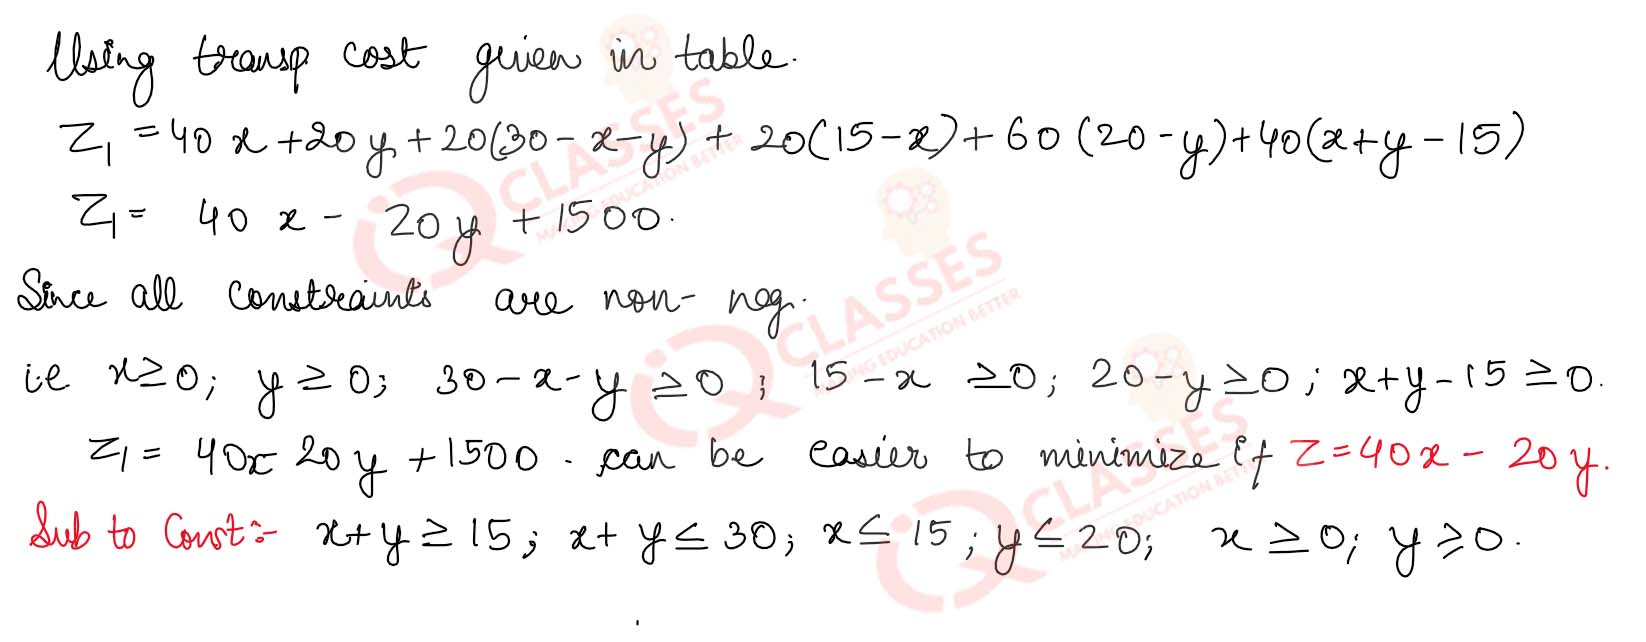 Using transp cost given in table.
Z₁ = 40x + 20y + 20(30-x-y) + 20(15-x) + 60(20-y) + 40(x+y-15)
Z₁ = 40x - 20y + 1500.
Since all constraints are non-neg.
i.e x≥0; y≥0; 30-x-y≥0; 15-x ≥0; 20-y≥0; x+y-15≥0.
Z₁ = 40x 20y + 1500. can be easier to minimize if Z=40x - 20y.
Sub to Const:- x+y≥15; x+y≤30; x≤15; y≤20; x≥0; y≥0.
CLASSES
MAKING EDUCATION BETTER
CLASSES
MAKING EDUCATION BETTER
CLASSES
MAKING EDUCATION BETTER